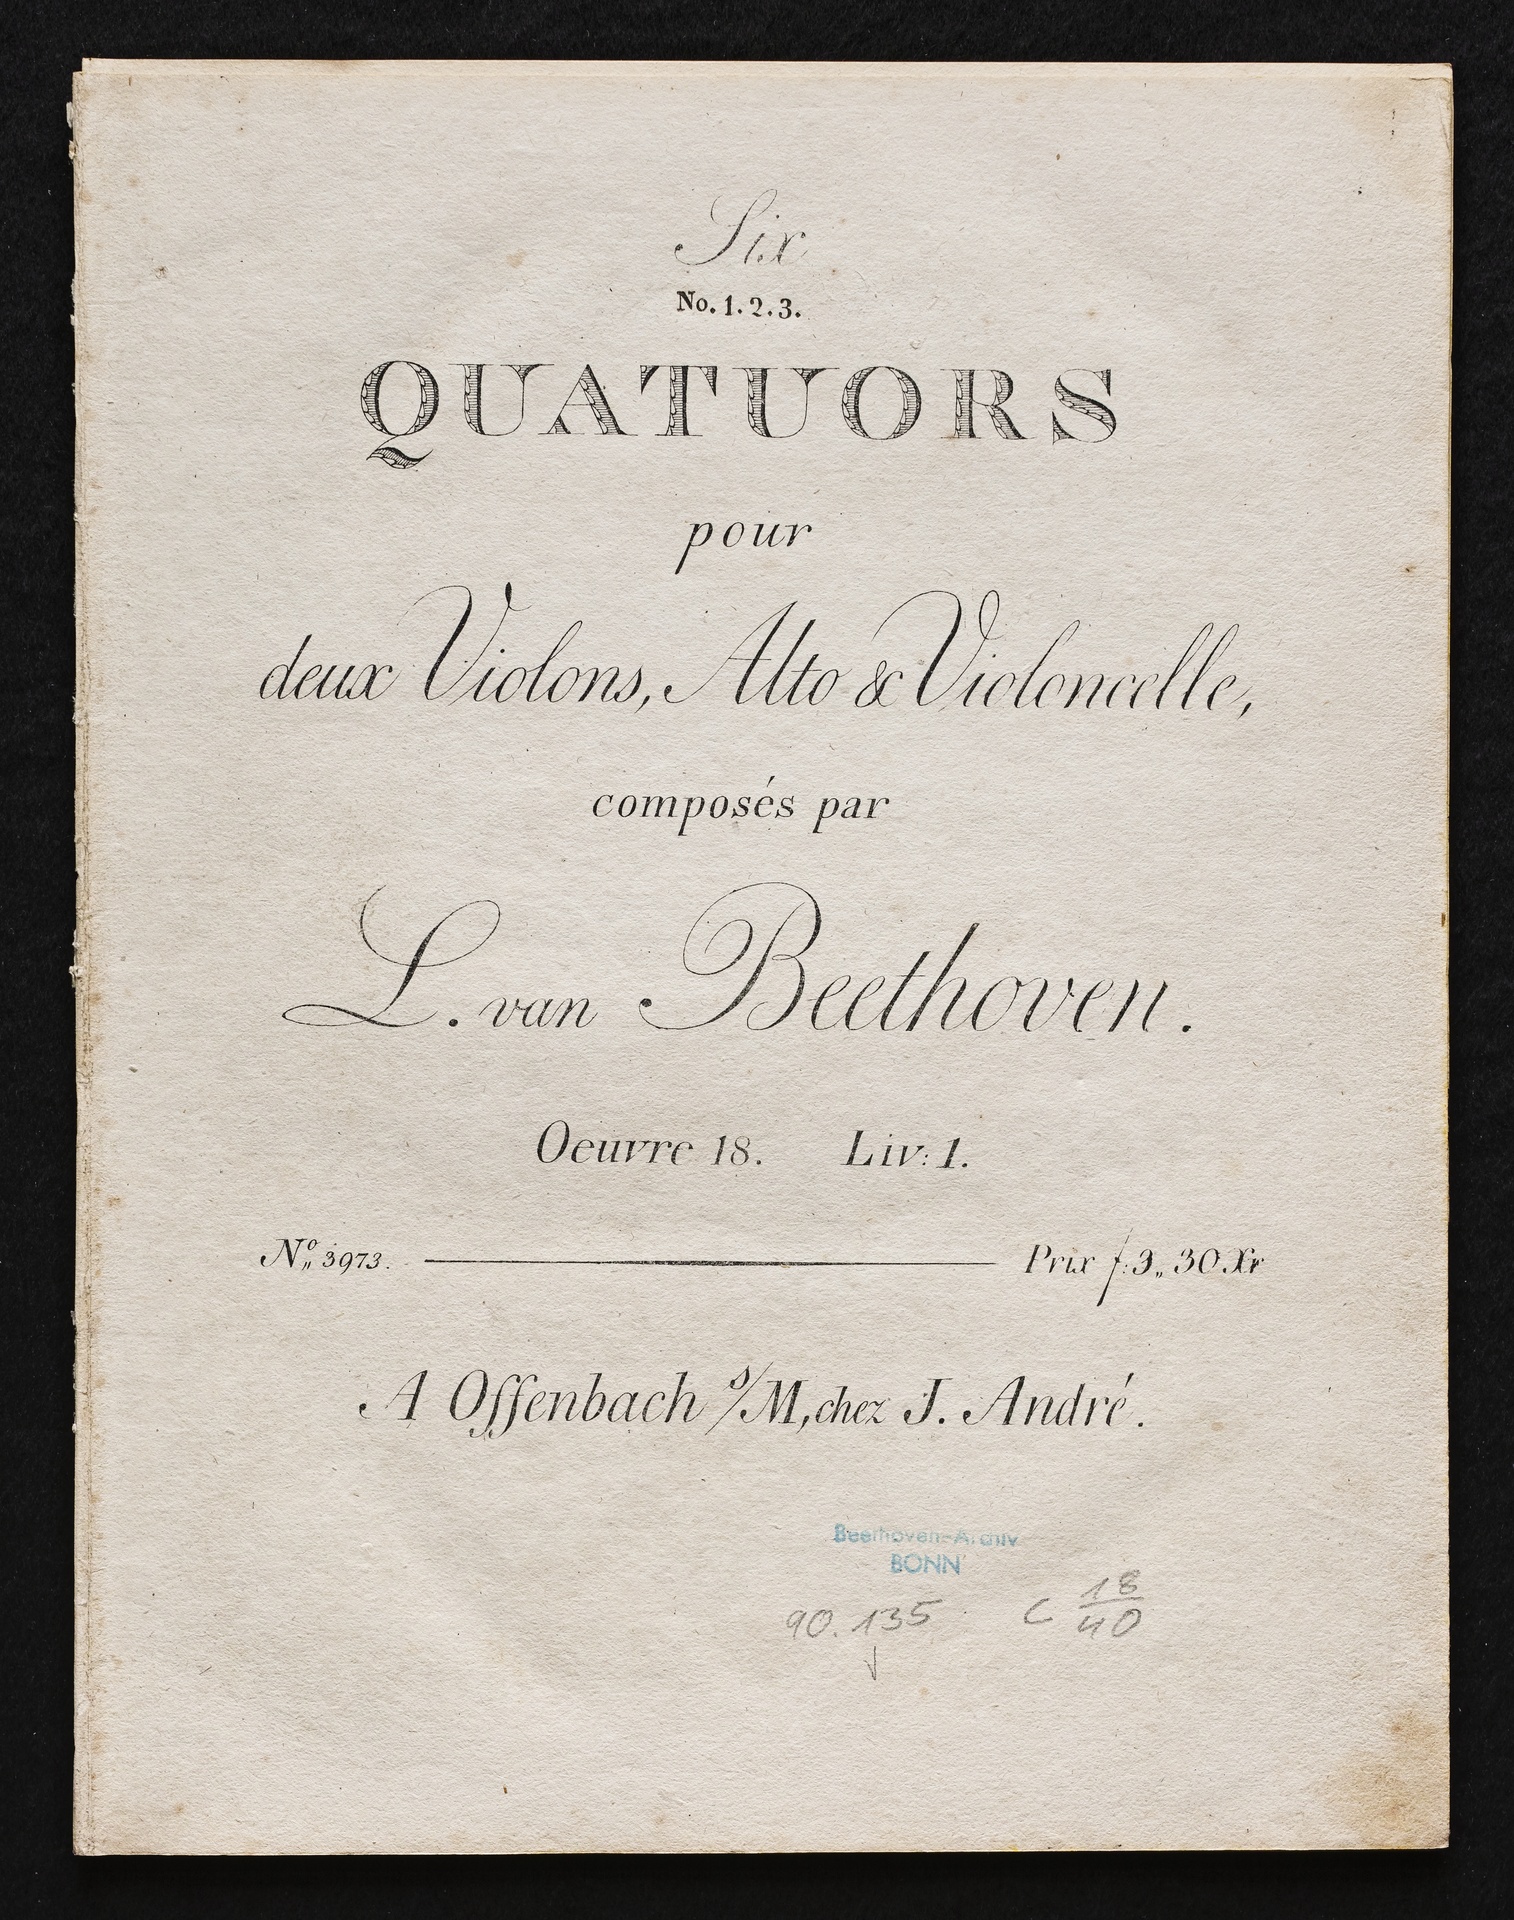 Six
No. 1. 2. 3.
QUATUORS
pour
deux Violons, Alto & Violoncelle,
composés par
L. van Beethoven.
Oeuvre 18. Liv: 1.
Nº„ 3973. Prix f: 3„ 30 Xr
A Offenbach s/M, chez J. André.
Beethoven-Archiv
BONN
90. 135 C 18/40